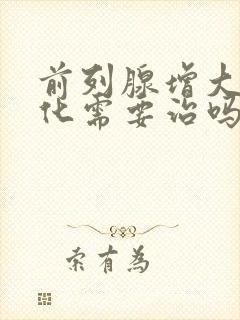 前列腺增大
化需要治吗
索有為